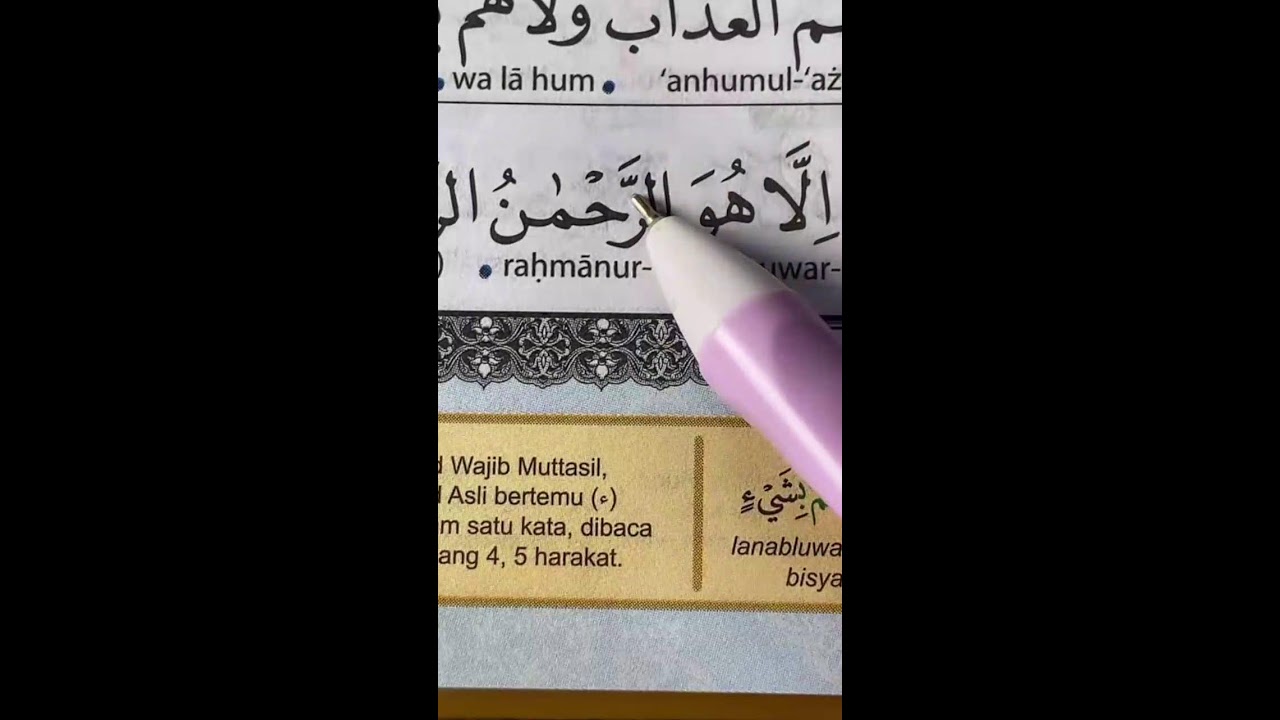 العذاب ولا هم
wa lā hum • ‘anhumul-‘aż
اِلَّا هُوَ الرَّحْمٰنُ
raḥmānur- uwar-
Wajib Muttasil,
Asli bertemu (ء)
m satu kata, dibaca
ang 4, 5 harakat.
بِشَيْءٍ
lanabluwa
bisya